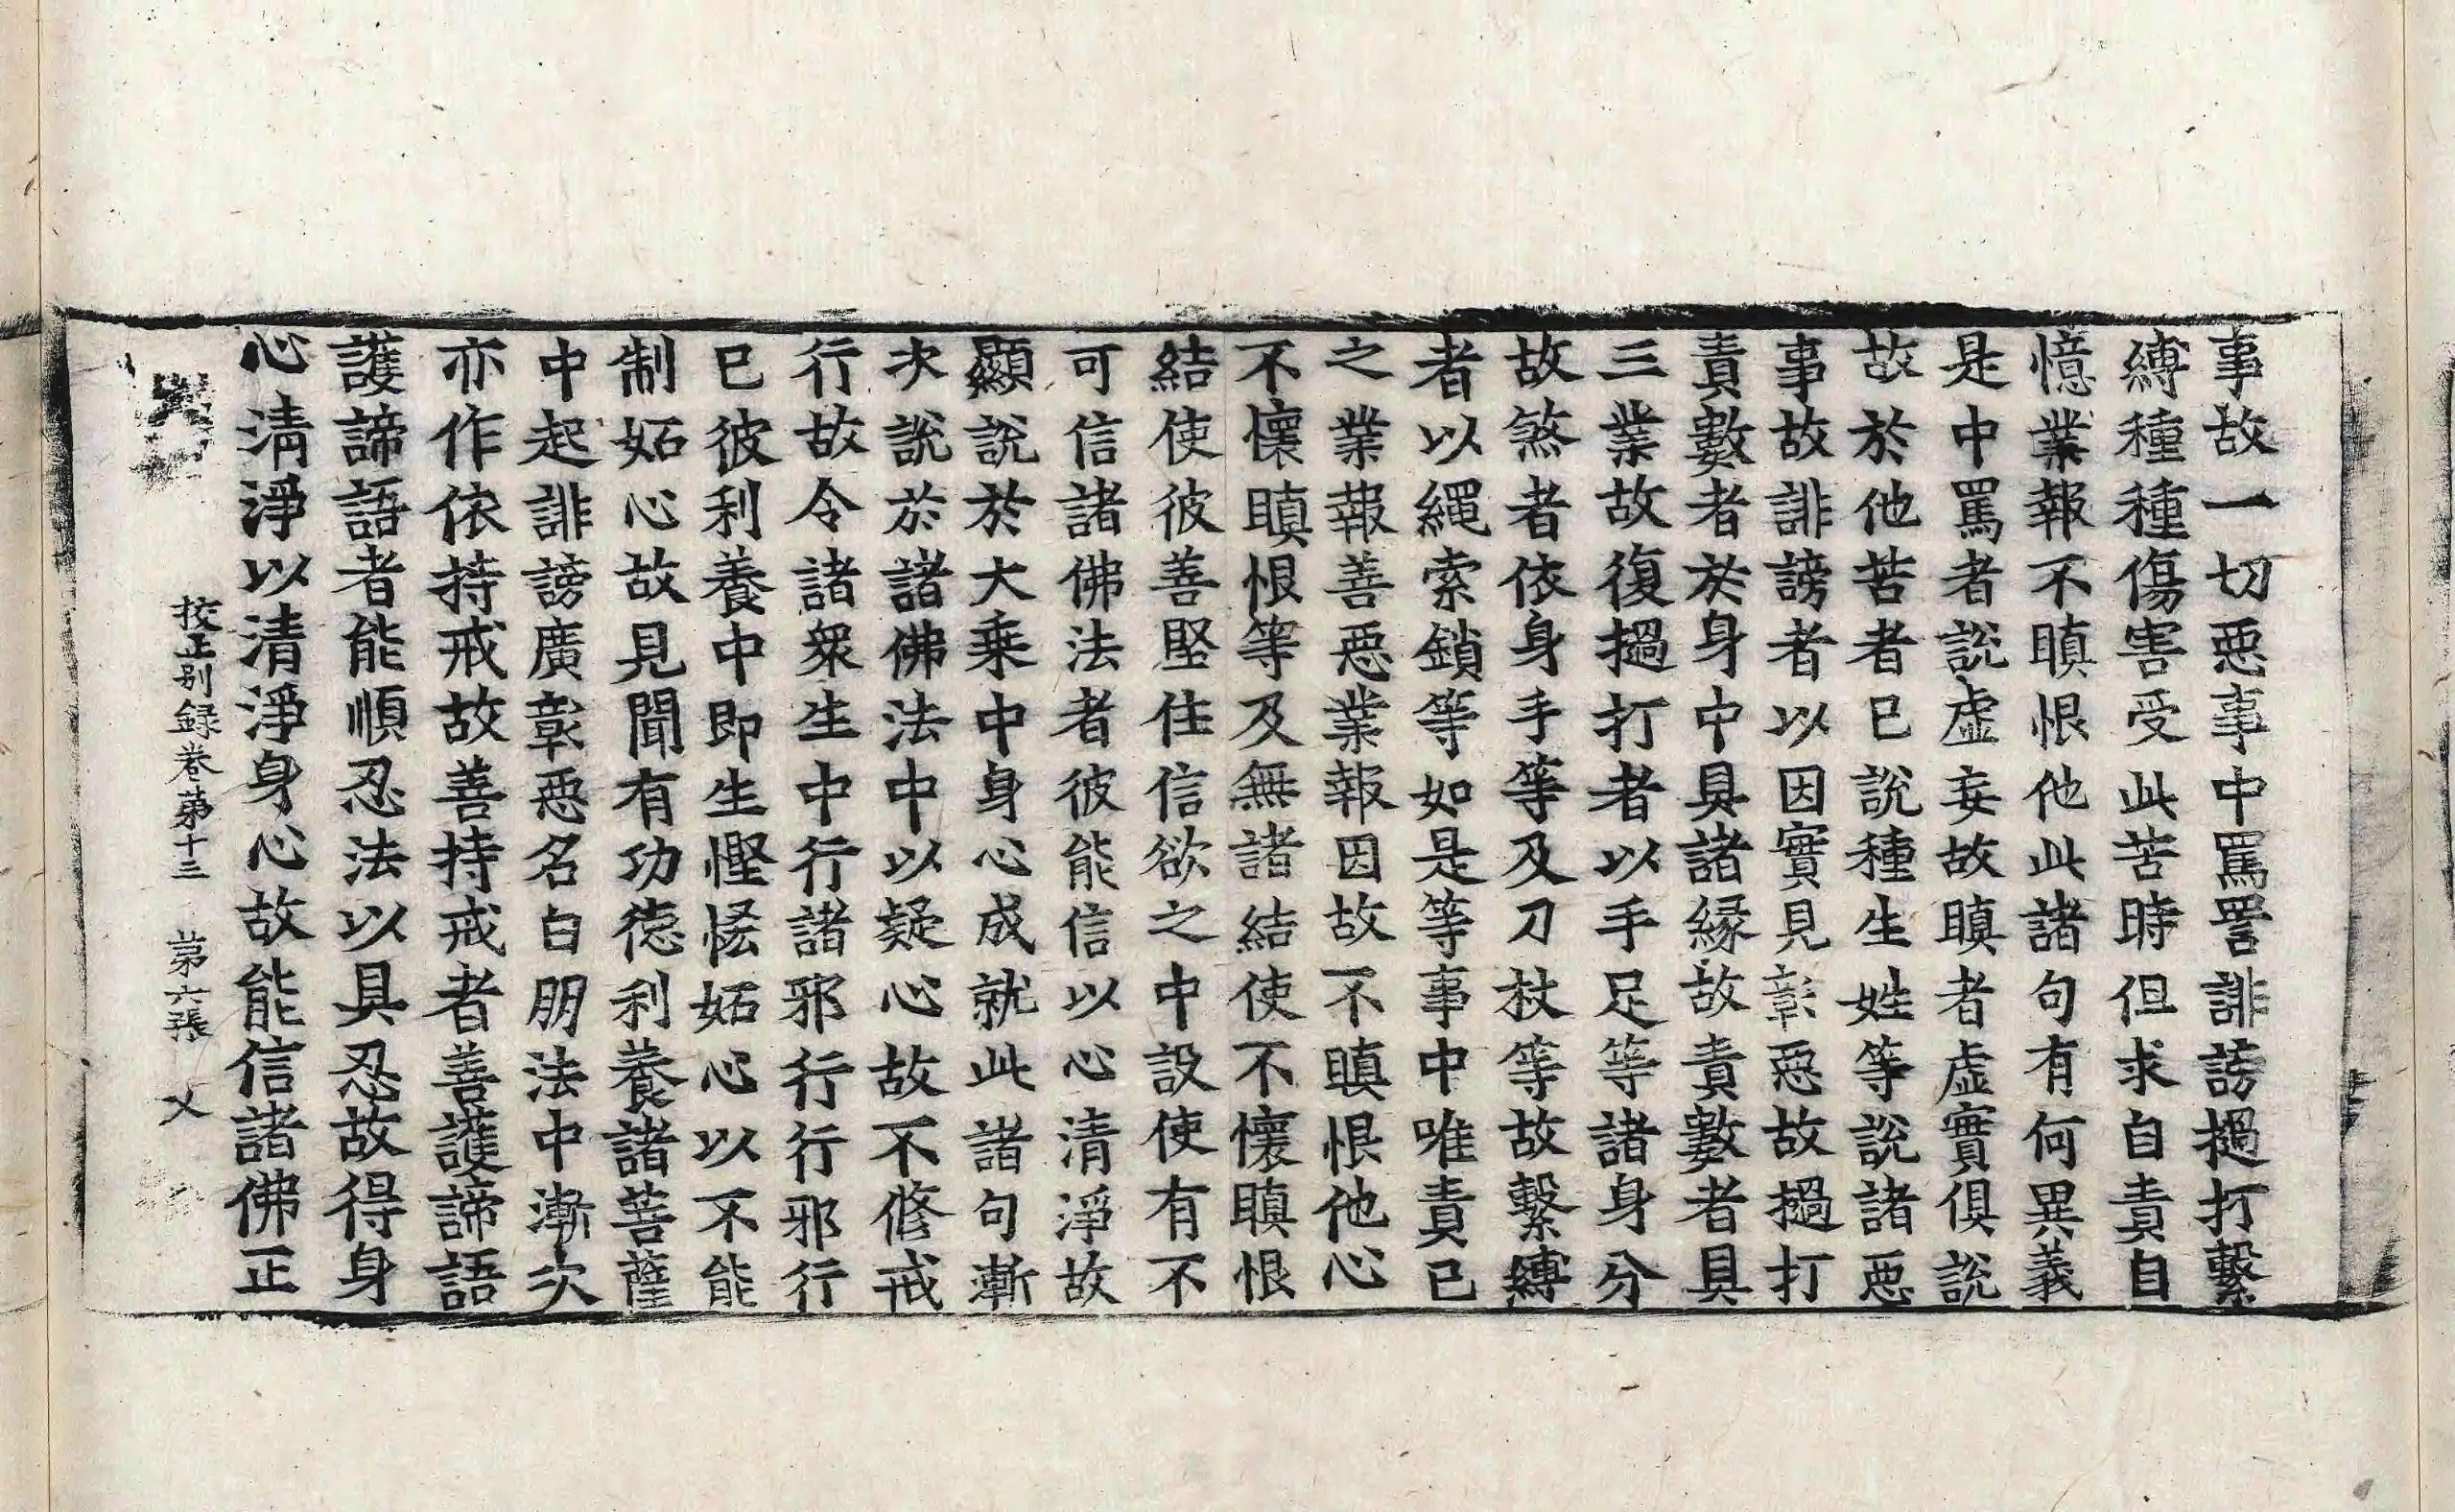 事故一切惡事中罵詈誹謗撾打繫
縛種種傷害受此苦時但求自責自
憶業報不瞋恨他此諸句有何異義
是中罵者說虛妄故瞋者虛實俱說
故於他苦者已說種生姓等說諸惡
事故誹謗者以因實見彰惡故撾打
責數者於身中具諸緣故責數者具
三業故復撾打者以手足等諸身分
故煞者依身手等及刀杖等故繫縛
者以繩索鎖等如是等事中唯責已
之業報善惡業報因故不瞋恨他心
不懷瞋恨等及無諸結使不懷瞋恨
結使彼善堅住信欲之中設使有不
可信諸佛法者彼能信以心清淨故
顯說於大乘中身心成就此諸句漸
次說於諸佛法中以疑心故不修戒
行故令諸衆生中行諸邪行行邪行
已彼利養中即生慳悋妬心以不能
制妬心故見聞有功德利養諸菩薩
中起誹謗廣彰惡名白朋法中漸次
亦作依持戒故善持戒者善護諦語
護諦語者能順忍法以具忍故得身
心清淨以清淨身心故能信諸佛正
校正别録卷第十三 第六張 乂